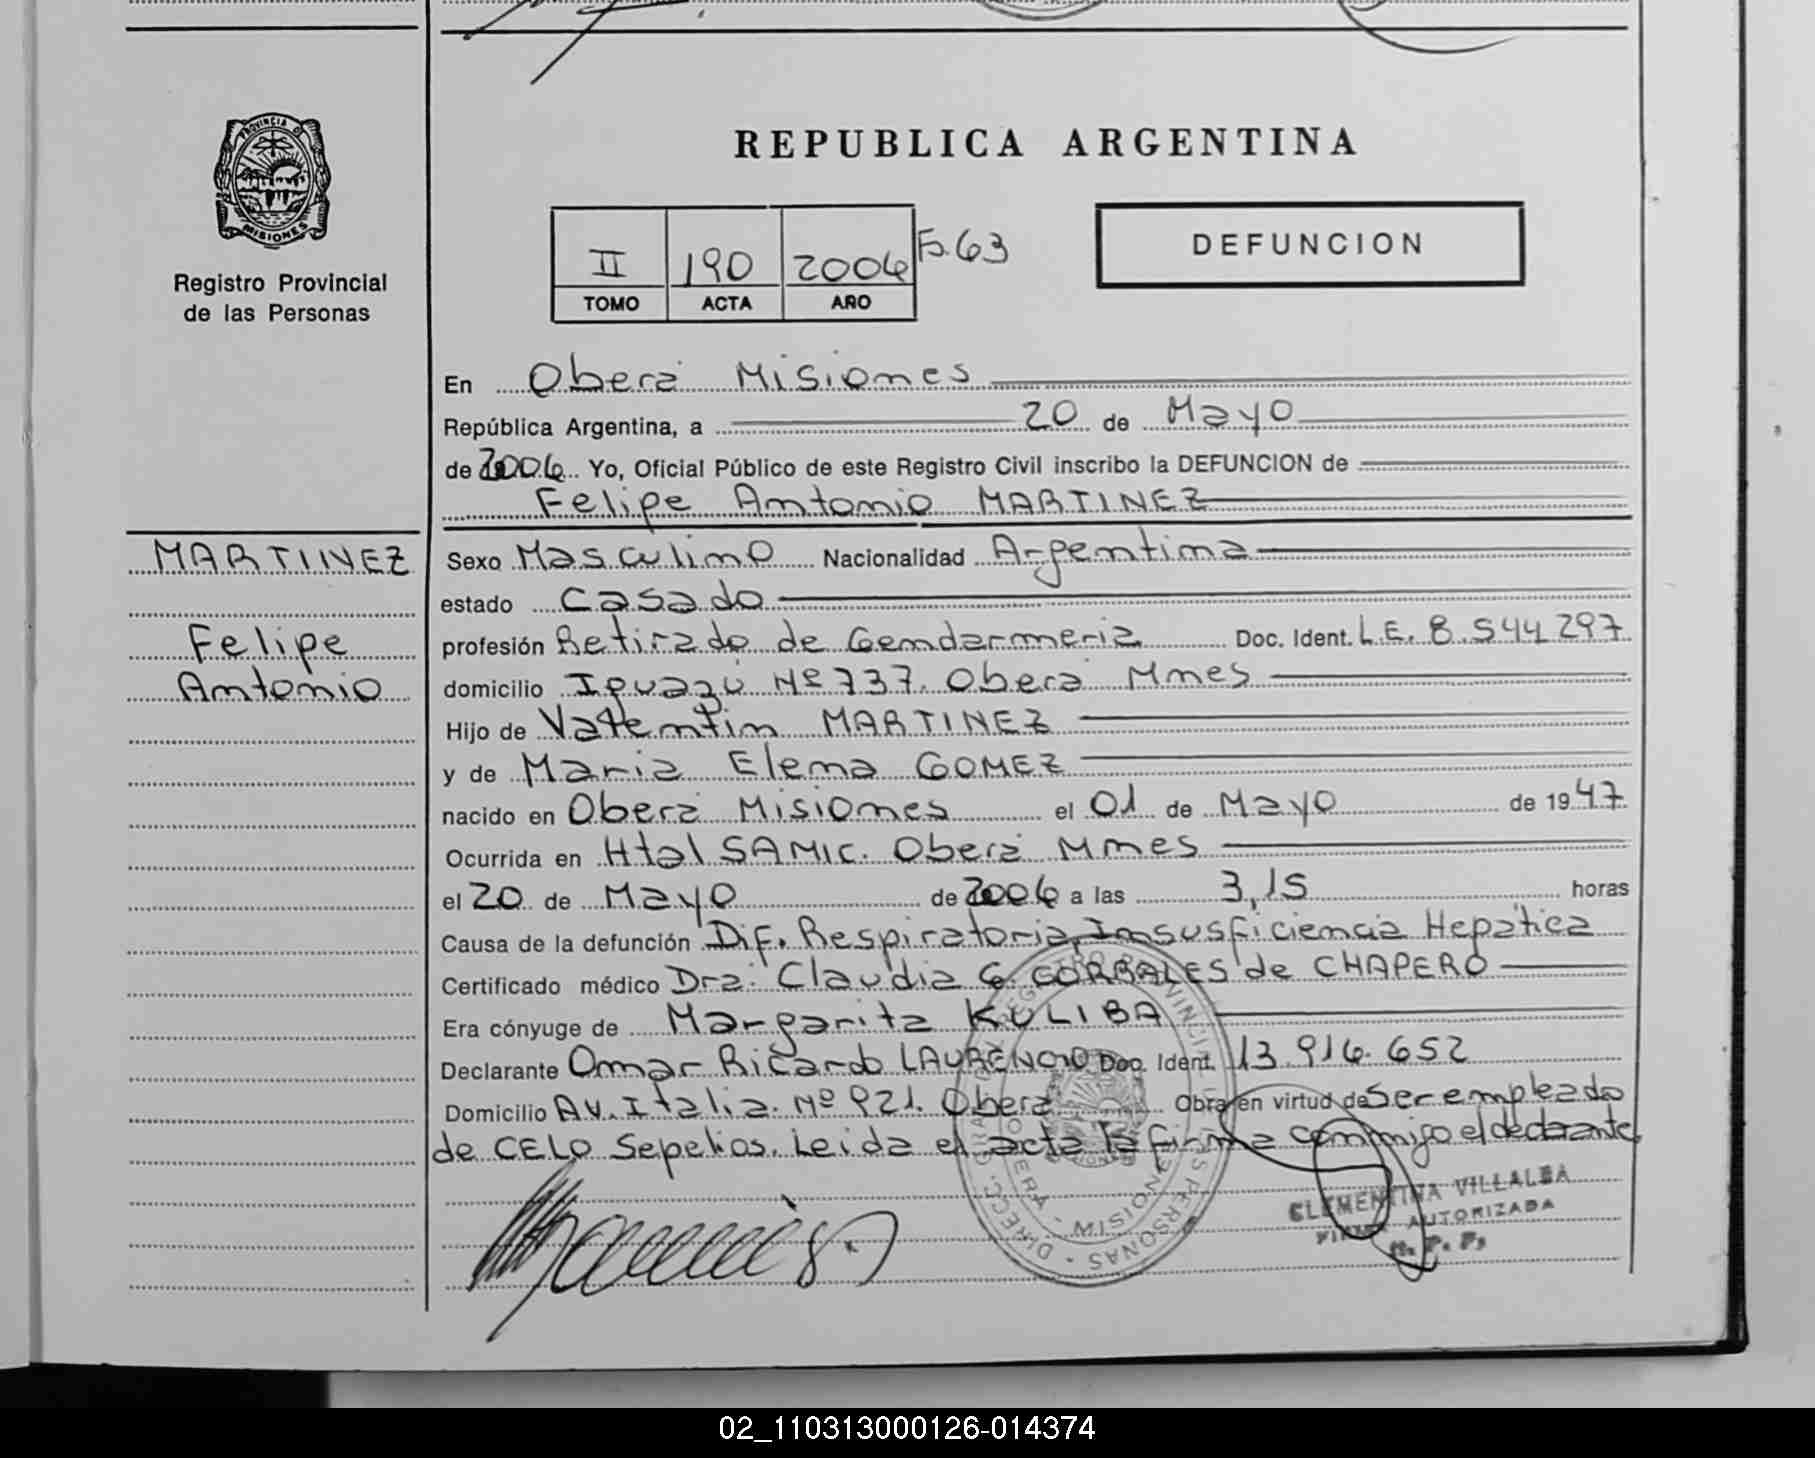 REPUBLICA ARGENTINA
PROVINCIA D
MISIONES
Registro Provincial
de las Personas
II 190 2006 F.63
TOMO ACTA AÑO
DEFUNCION
En Oberá Misiones
República Argentina, a 20 de Mayo
de 2006 Yo, Oficial Público de este Registro Civil inscribo la DEFUNCION de
Felipe Antonio MARTINEZ
MARTINEZ
Felipe
Antonio
Sexo Masculino Nacionalidad Argentina
estado Casado
profesión Retirado de Gendarmeria Doc. Ident. L.E. 8.544297
domicilio Iguazú Nº 737. Oberá Mnes
Hijo de Valentin MARTINEZ
y de Maria Elena GOMEZ
nacido en Oberá Misiones el 01 de Mayo de 1947
Ocurrida en Htal SAMIC. Oberá Mnes
el 20 de Mayo de 2006 a las 3,15 horas
Causa de la defunción Dif. Respiratoria, Insusficiencia Hepática
Certificado médico Dra. Claudia G. CORRALES de CHAPERO
Era cónyuge de Margarita KULIBA
Declarante Omar Ricardo LAURENCIO Doc. Ident. 13.916.652
Domicilio Av. Italia. Nº 921. Oberá Obra en virtud de Ser empleado
de CELO Sepelios. Leida el acta la firma conmigo el declarante.
CLEMENTINA VILLALBA
FIRMA AUTORIZADA
R. P. P.
02_110313000126-014374